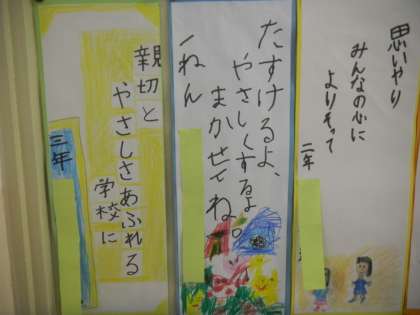 思いやり
みんなの心に
よりそって
二年
たすけるよ、
やさしくするよ。
まかせてね。
一ねん
親切と
やさしさあふれる
学校に
三年